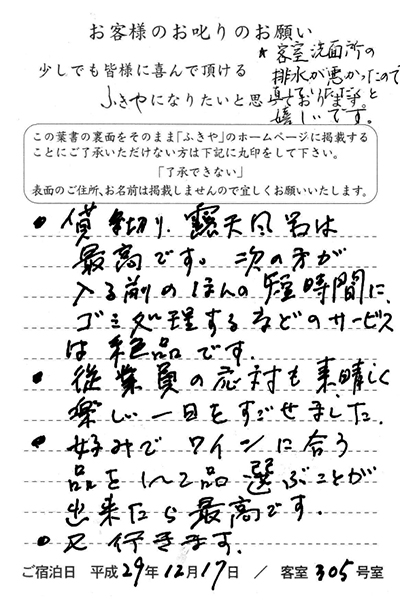 お客様のお叱りのお願い
★客室洗面所の
排水が悪かったので
直していただくと
嬉しいです。
少しでも皆様に喜んで頂ける
ふきやになりたいと思っております。
この葉書の裏面をそのまま「ふきや」のホームページに掲載する
ことにご了承いただけない方は下記に丸印をして下さい。
「了承できない」
表面のご住所、お名前は掲載しませんので宜しくお願いいたします。
● 貸し切り、露天風呂は
最高です。次の方が
入る前のほんの短時間に、
ゴミ処理するなどのサービス
は絶品です。
● 従業員の応対も素晴しく
楽しい一日をすごせました。
● 好みでワインに合う
品を1〜2品選ぶことが
出来たら最高です。
● 又行きます。
ご宿泊日 平成29年12月17日 / 客室305号室